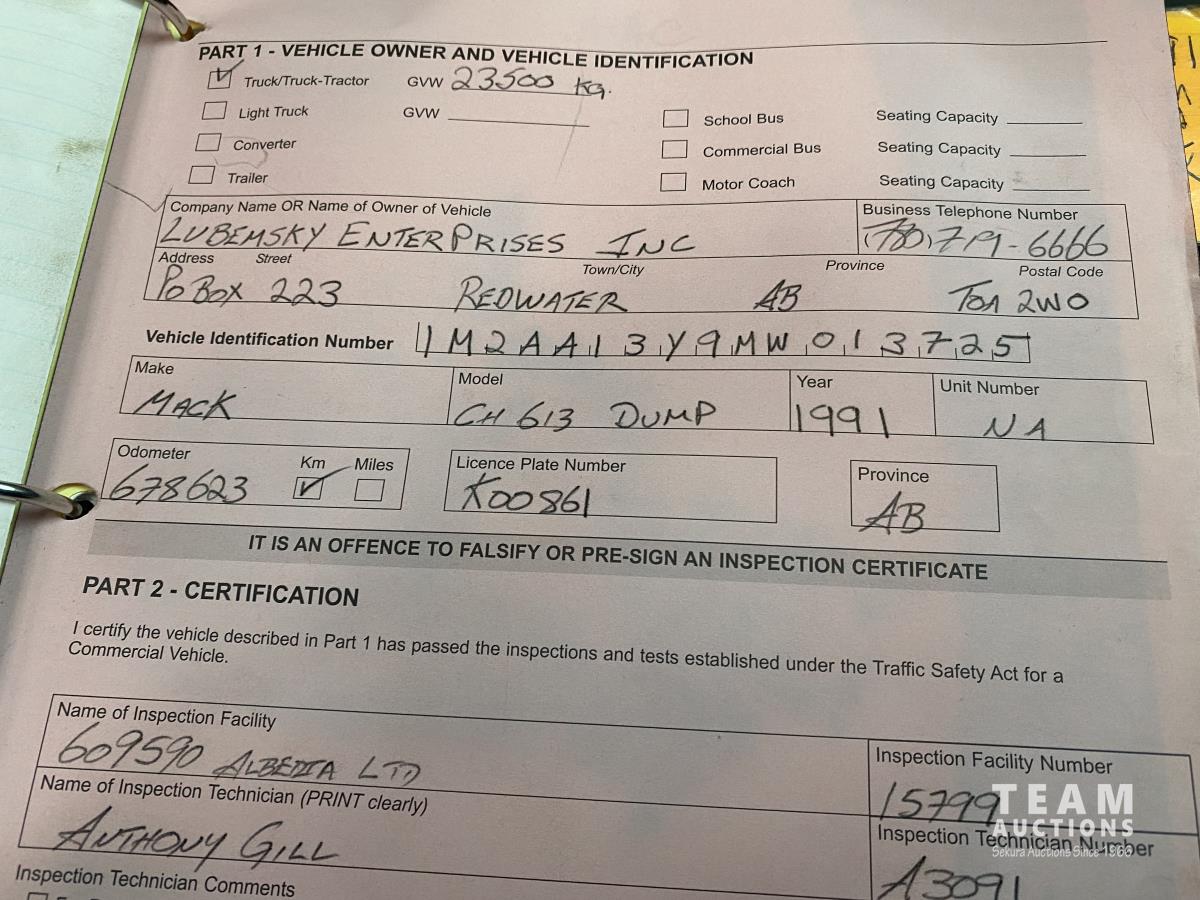 PART 1 - VEHICLE OWNER AND VEHICLE IDENTIFICATION
Truck/Truck-Tractor GVW 23500 KG.
Light Truck GVW
School Bus Seating Capacity
Converter
Commercial Bus Seating Capacity
Trailer
Motor Coach Seating Capacity
Company Name OR Name of Owner of Vehicle Business Telephone Number
LUBEMSKY ENTERPRISES INC (780) 719-6666
Address Street Town/City Province Postal Code
PO BOX 223 REDWATER AB TOA 2WO
Vehicle Identification Number 1M2AA13Y9MW013725
Make Model Year Unit Number
MACK CH 613 DUMP 1991 NA
Odometer Km Miles Licence Plate Number Province
678623 K00861 AB
IT IS AN OFFENCE TO FALSIFY OR PRE-SIGN AN INSPECTION CERTIFICATE
PART 2 - CERTIFICATION
I certify the vehicle described in Part 1 has passed the inspections and tests established under the Traffic Safety Act for a
Commercial Vehicle.
Name of Inspection Facility Inspection Facility Number
609590 ALBERTA LTD 15799
Name of Inspection Technician (PRINT clearly) Inspection Technician Number
ANTHONY GILL A3091
Inspection Technician Comments
TEAM
AUCTIONS
Sekura Auctions Since 1966